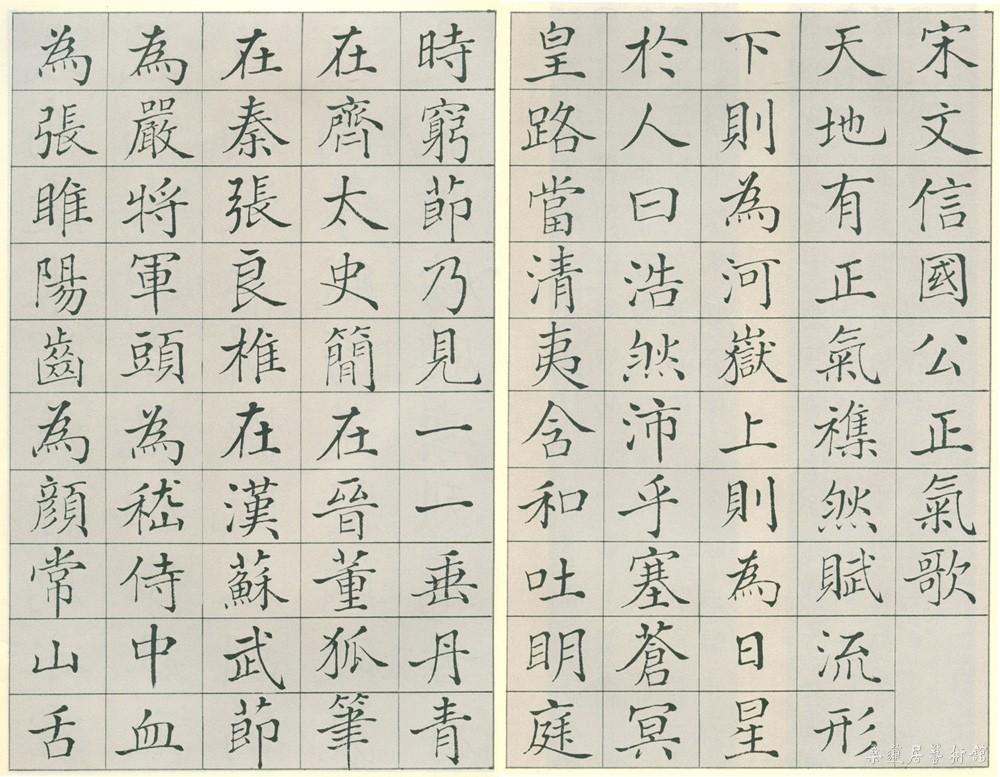 宋文信國公正氣歌
天地有正氣襍然賦流形
下則為河嶽上則為日星
於人曰浩然沛乎塞蒼冥
皇路當清夷含和吐明庭
時窮節乃見一一垂丹青
在齊太史簡在晉董狐筆
在秦張良椎在漢蘇武節
為嚴將軍頭為嵇侍中血
為張睢陽齒為顏常山舌